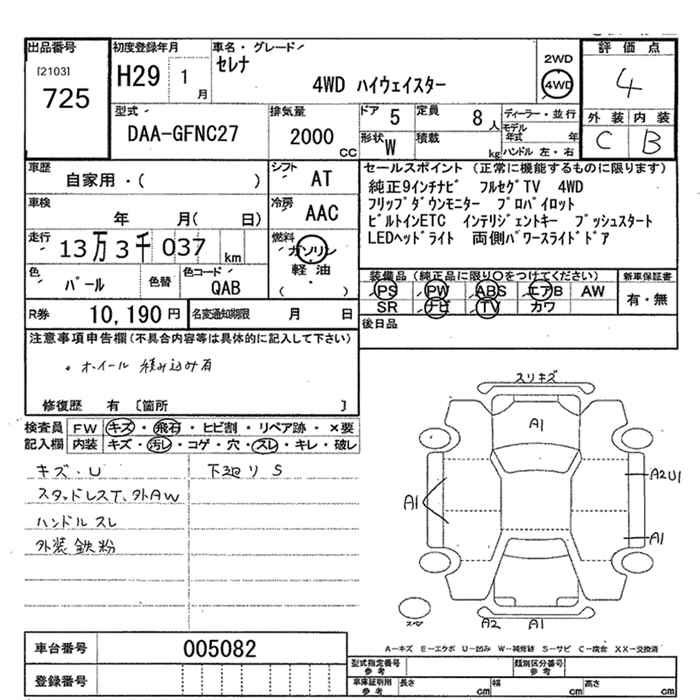 出品番号 初度登録年月 車名・グレード 2WD 評価点
[2103] 725 H29 1月 セレナ 4WD ハイウェイスター 4WD 4
型式 DAA-GFNC27 排気量 2000 CC ドア 5 定員 8人 ディーラー・並行 外装 内装
形状 W 積載 kg モデル年式 年 ハンドル 左・右 C B
車歴 自家用・( ) シフト AT セールスポイント (正常に機能するものに限ります)
車検 年 月( 日) 冷房 AAC 純正9インチナビ フルセグTV 4WD
フリップダウンモニター プロパイロット
ビルトインETC インテリジェントキー プッシュスタート
LEDヘッドライト 両側パワースライドドア
走行 13万3千037km 燃料 ガソリン 軽油 ( ・ )
色 パール 色替 色コード QAB 装備品(純正品に限り○をつけてください) 新車保証書
PS PW ABS エアB AW 有・無
SR ナビ TV カワ
R券 10,190円 名変通知期限 月 日 後日品
注意事項申告欄(不具合内容等は具体的に記入して下さい)
・ホイール 積み込み有
修復歴 有 〔箇所 〕
検査員 FW キズ・飛石・ヒビ割・リペア跡・×要
記入欄 内装 キズ・汚レ・コゲ・穴・スレ・キレ・破レ
キズ・U 下廻りS
スタッドレスT、外AW
ハンドルスレ
外装鉄粉
スリキズ
A1
A1 A2U1
A1
A2 A1
A-キズ E-エクボ U-凹み W-補修跡 S-サビ C-腐食 XX-交換済
車台番号 005082 型式指定番号 参考 類別区分番号 参考
登録番号 車庫証明用 参考 長さ cm 幅 cm 高さ cm